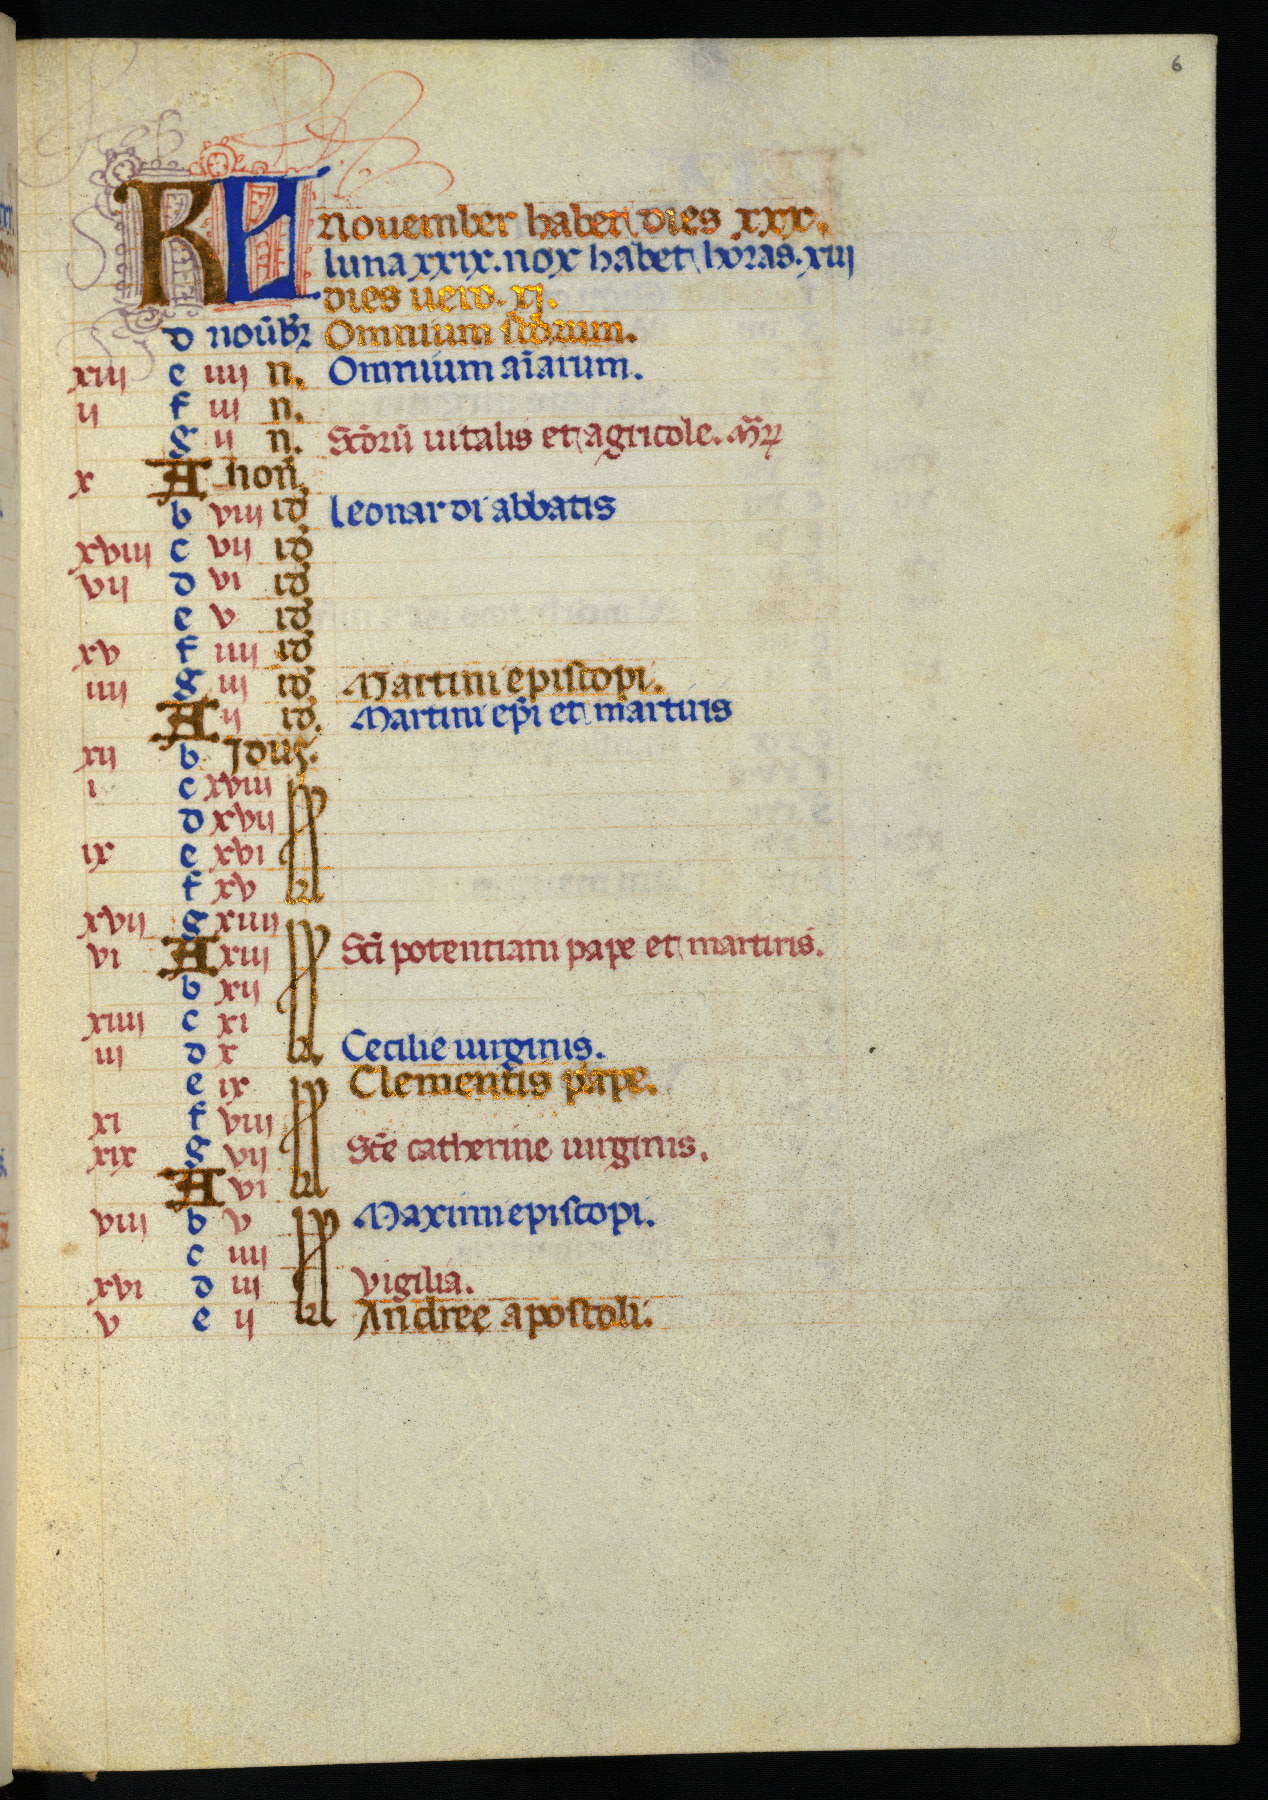 6
KL
november habet dies xxx.
luna xxix. nox habet horas. xiii
dies uero. xi.
d nouēbr Omnium sc̄orum.
xiii e iiii n. Omnium aīarum.
ii f iii n.
g ii n. Sc̄orū uitalis et agricole. m̄r̄
x A non̄.
b viii id Leonardi abbatis
xviii c vii id
vii d vi id
e v id
xv f iiii id
iiii g iii id Martini episcopi.
A ii id. Martini ep̄i et martiris
xii b Idus.
i c xviii
d xvii
ix e xvi
f xv
xvii g xiiii
vi A xiii Sc̄i potentiani pape et martiris.
b xii
xiiii c xi
iii d x Cecilie uirginis.
e ix Clementis pape.
xi f viii
xix g vii Sc̄e catherine uirginis.
A vi
viii b v Maximi episcopi.
c iiii
xvi d iii vigilia.
v e ii Andree apostoli.